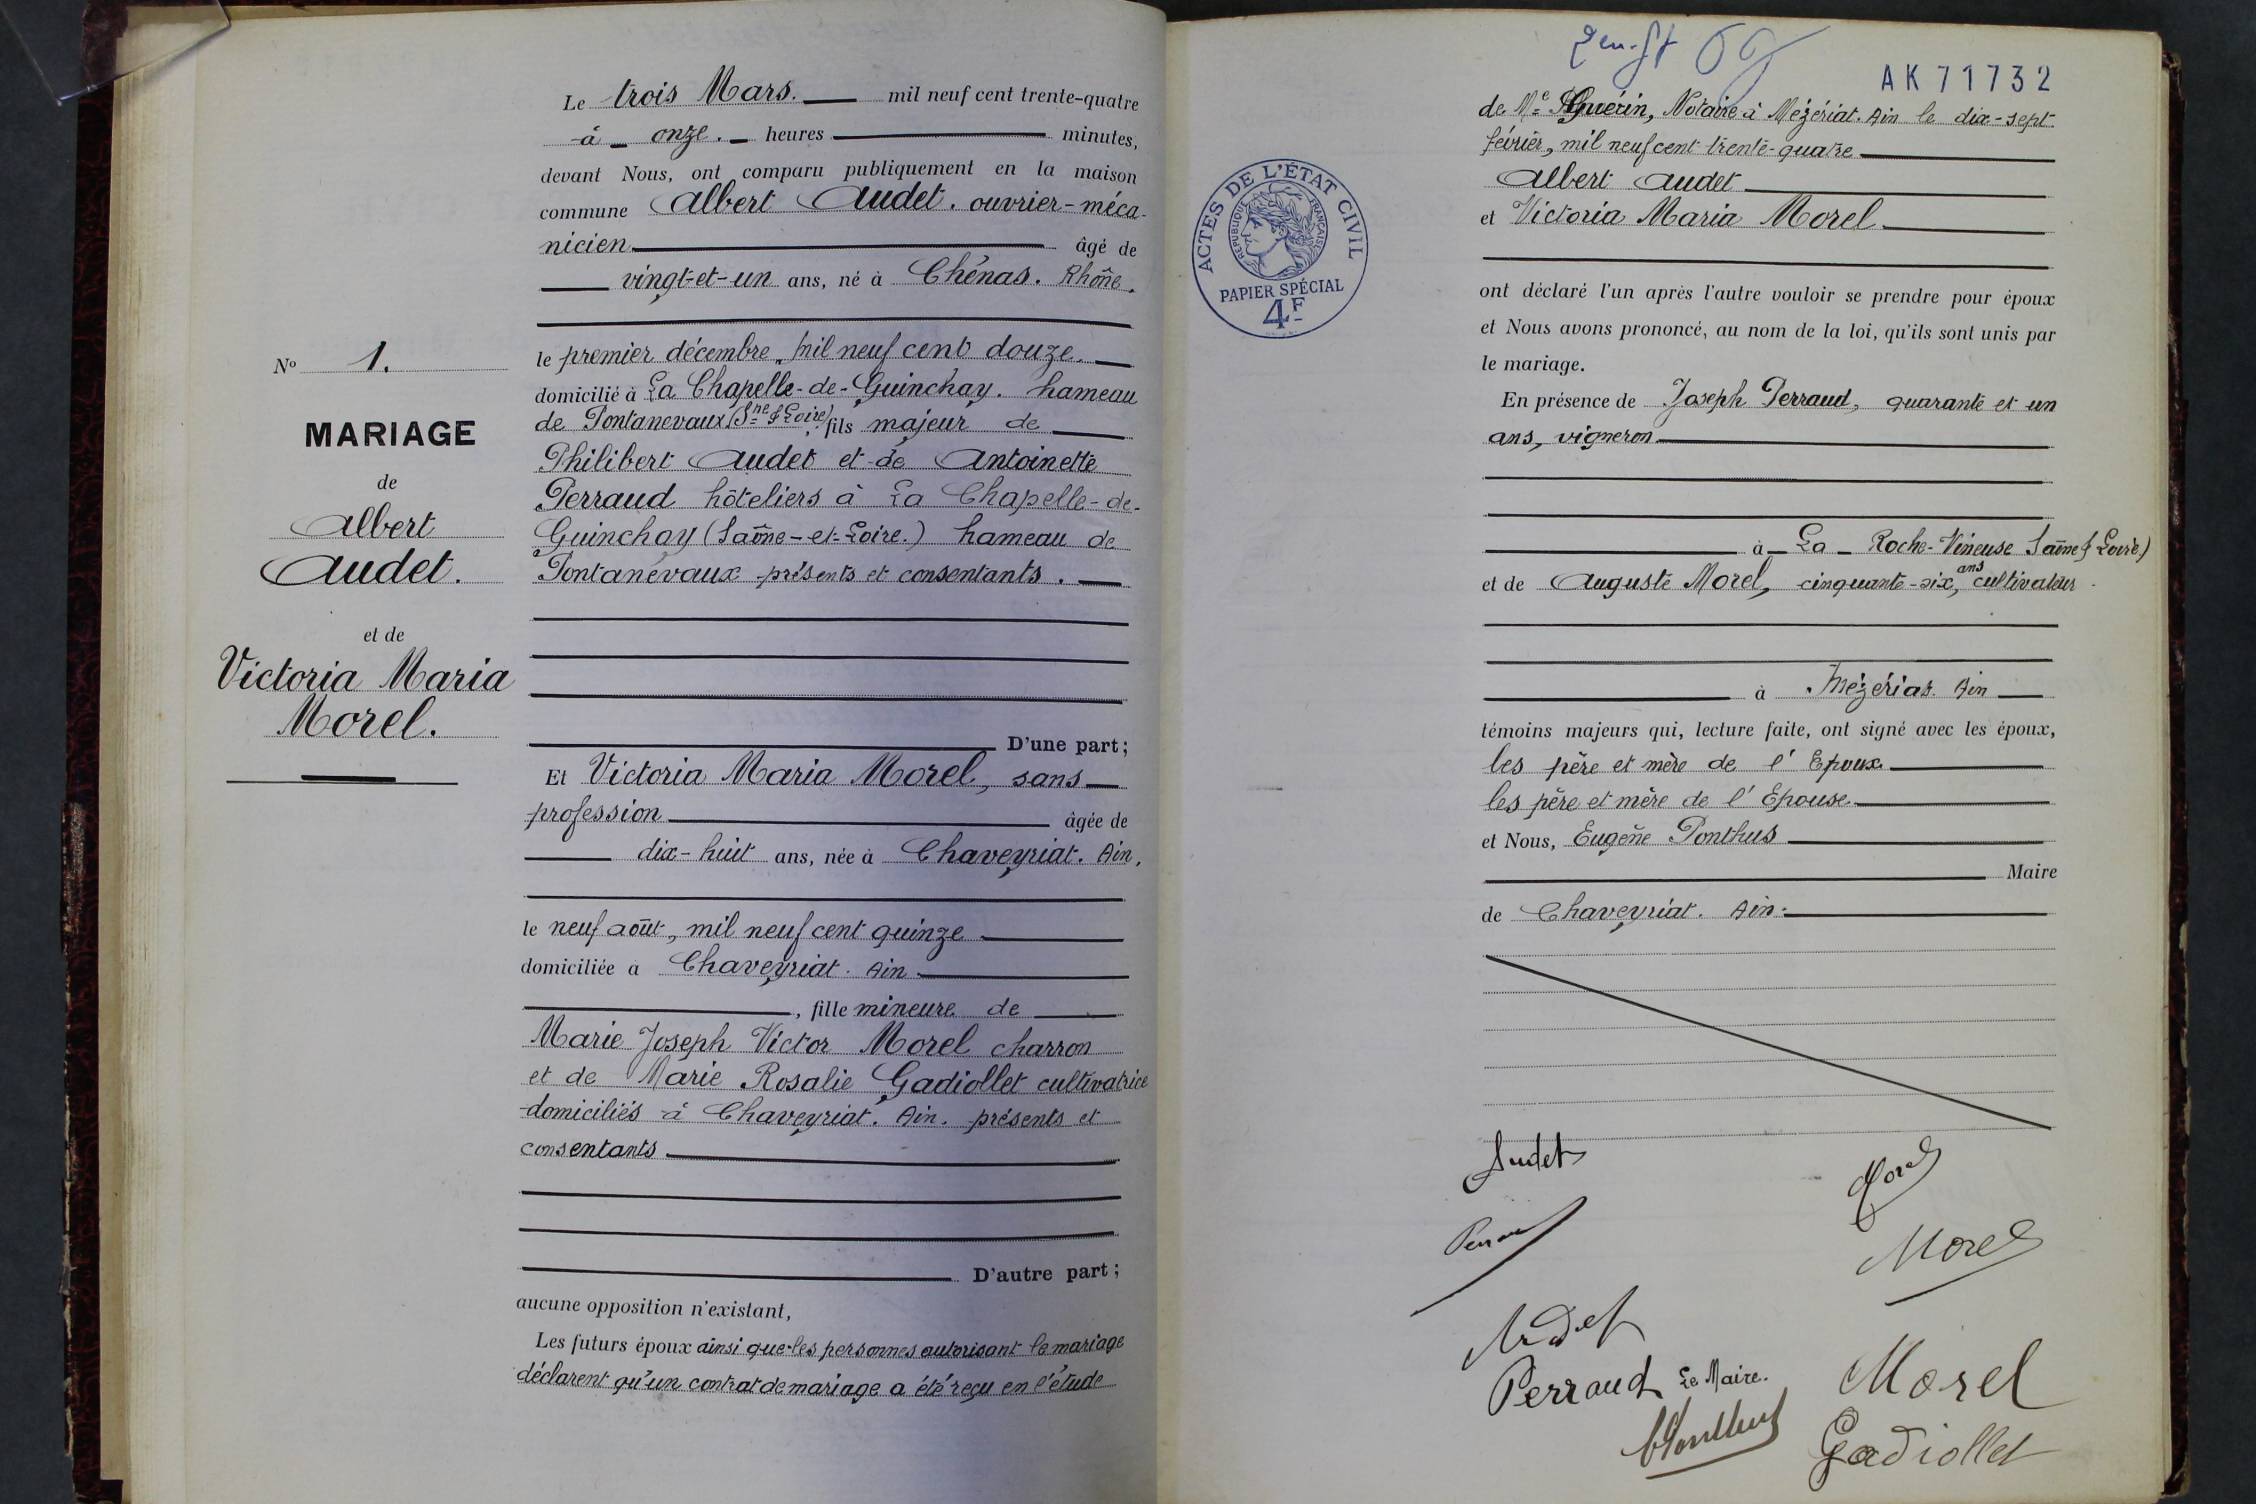 Le trois Mars. mil neuf cent trente-quatre
à onze. heures minutes,
devant Nous, ont comparu publiquement en la maison
commune Albert Audet. ouvrier-méca-
nicien âgé de
vingt-et-un ans, né à Chénas. Rhône.
le premier décembre, mil neuf cent douze.
domicilié à La Chapelle-de-Guinchay. hameau
de Pontanevaux (Sne & Loire), fils majeur de
Philibert Audet et de Antoinette
Perraud hôteliers à La Chapelle-de-
Guinchay (Saône-et-Loire.) hameau de
Pontanévaux présents et consentants.
D'une part;
Et Victoria Maria Morel, sans
profession âgée de
dix-huit ans, née à Chaveyriat. Ain,
le neuf août, mil neuf cent quinze
domiciliée à Chaveyriat. Ain
, fille mineure de
Marie Joseph Victor Morel charron
et de Marie Rosalie Gadiollet cultivatrice
domiciliés à Chaveyriat. Ain. présents et
consentants
D'autre part;
aucune opposition n'existant,
Les futurs époux ainsi que les personnes autorisant le mariage
déclarent qu'un contrat de mariage a été reçu en l'étude
No 1.
MARIAGE
de
Albert
Audet.
et de
Victoria Maria
Morel.
AK 71732
de Me Guérin, Notaire à Mézériat. Ain le dix-sept
février, mil neuf cent trente-quatre
Albert Audet
et Victoria Maria Morel
ont déclaré l'un après l'autre vouloir se prendre pour époux
et Nous avons prononcé, au nom de la loi, qu'ils sont unis par
le mariage.
En présence de Joseph Perraud, quarante et un
ans, vigneron
à La Roche-Vineuse Saône & Loire)
et de Auguste Morel, cinquante-six ans, cultivateur
à Mézériat. Ain
témoins majeurs qui, lecture faite, ont signé avec les époux,
les père et mère de l'Epoux
les père et mère de l'Epouse
et Nous, Eugène Ponthus
Maire
de Chaveyriat. Ain.
ACTES DE L'ÉTAT CIVIL
RÉPUBLIQUE FRANÇAISE
PAPIER SPÉCIAL
4F
Audet
Morel
Morel
Audet
Perraud Le Maire. Morel
EPonthus
Gadiollet